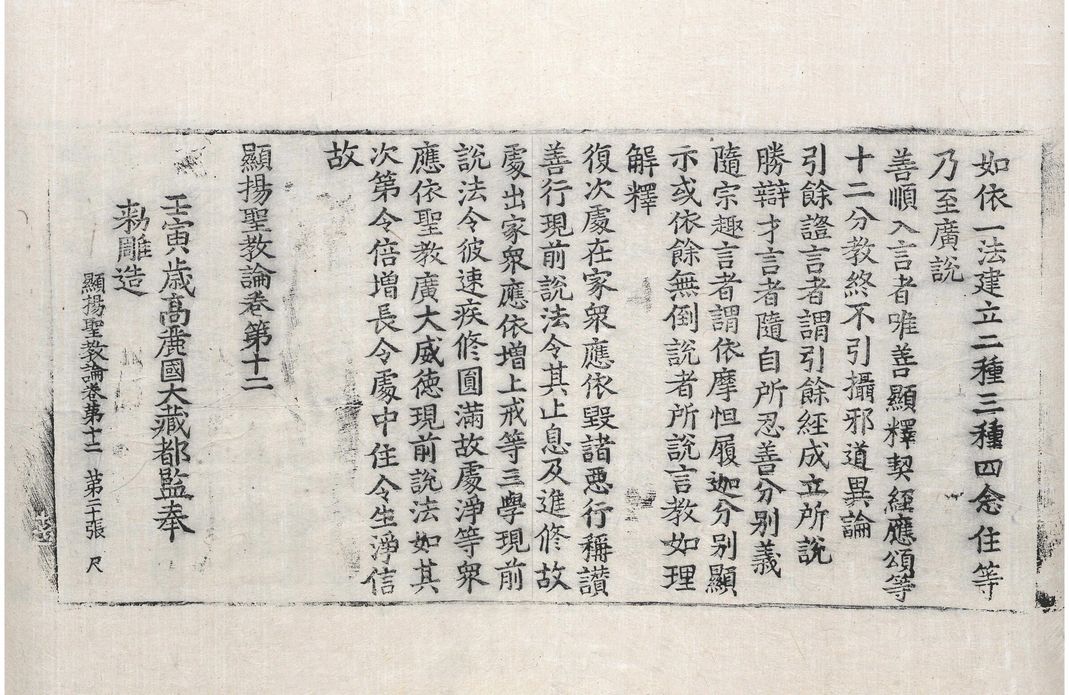 如依一法建立二種三種四念住等
乃至廣說
善順入言者唯善顯釋契經應頌等
十二分教終不引攝邪道異論
引餘證言者謂引餘經成立所說
勝辯才言者隨自所忍善分別義
隨宗趣言者謂依摩怛履迦分別顯
示或依餘無倒說者所說言教如理
解釋
復次處在家眾應依毀諸惡行稱讚
善行現前說法令其止息及進修故
處出家眾應依增上戒等三學現前
說法令彼速疾修圓滿故處淨等眾
應依聖教廣大威德現前說法如其
次第令倍增長令處中住令生淨信
故
顯揚聖教論卷第十二
壬寅歲高麗國大藏都監奉
勑雕造
顯揚聖教論卷第十二 第二十張 尺